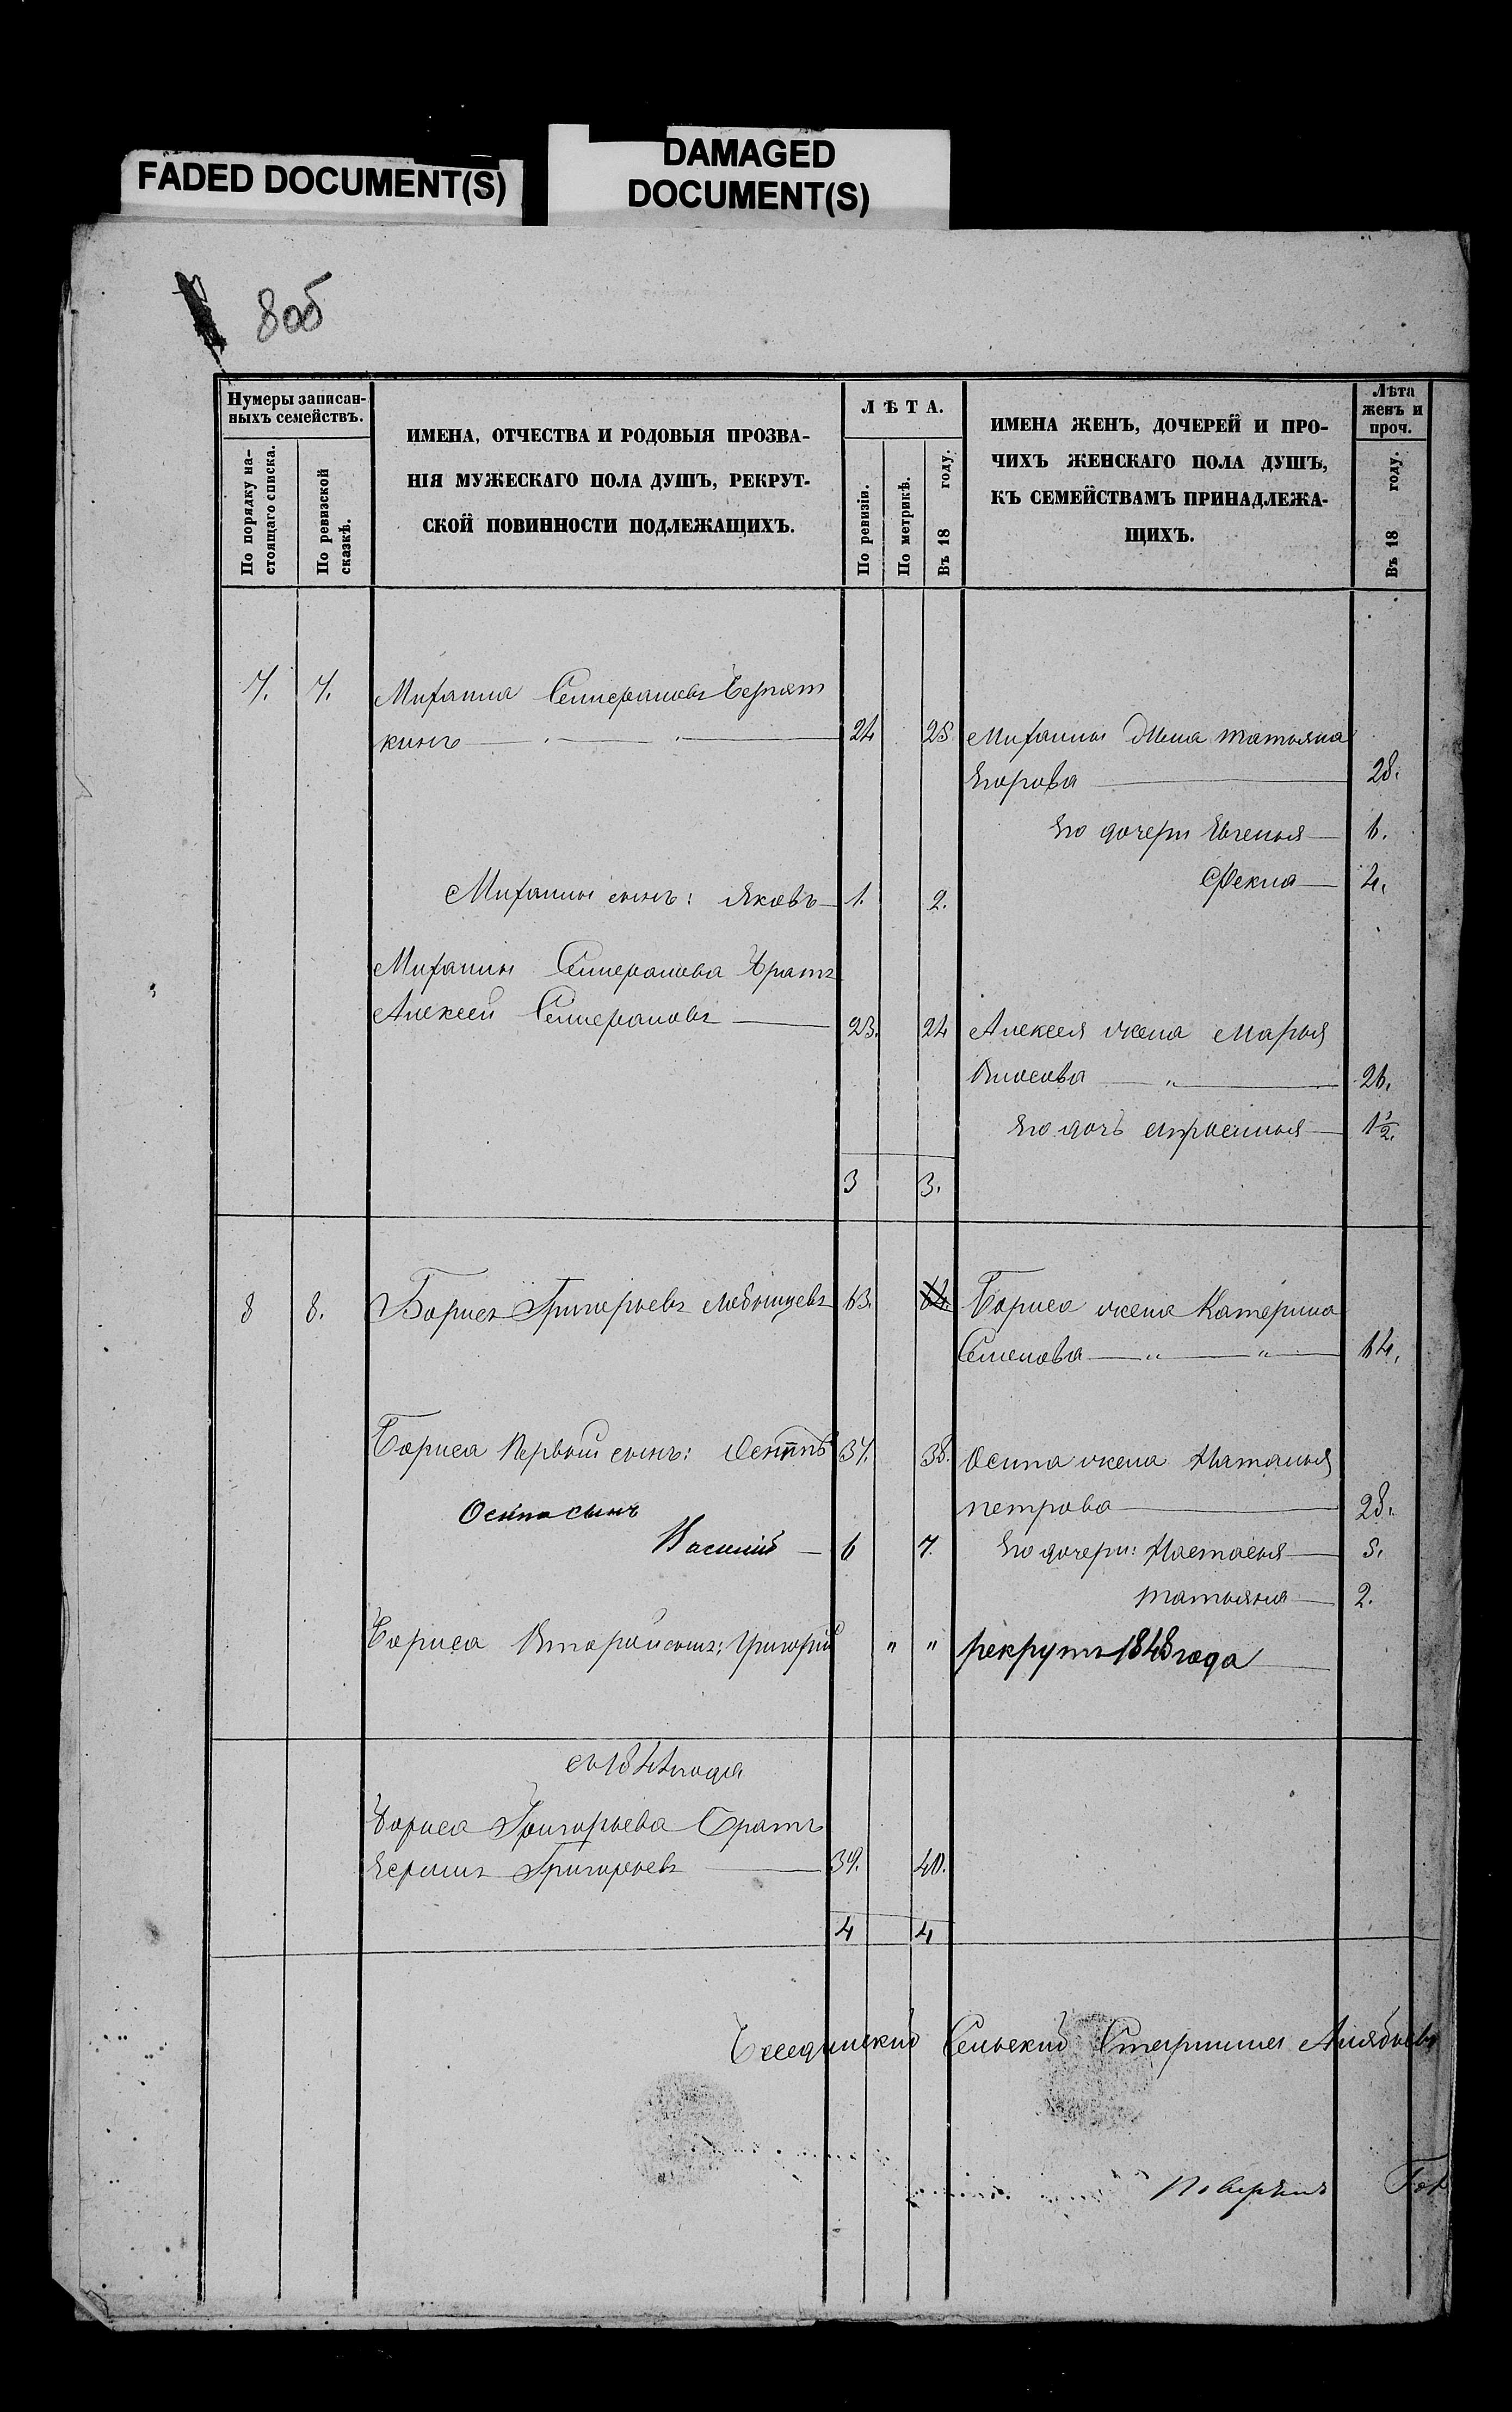 FADED DOCUMENT(S)
DAMAGED
DOCUMENT(S)
8об
Нумеры записан-
ныхъ семействъ.
По порядку на-
стоящаго списка.
По ревизской
сказкѣ.
ИМЕНА, ОТЧЕСТВА И РОДОВЫЯ ПРОЗВА-
НІЯ МУЖЕСКАГО ПОЛА ДУШЪ, РЕКРУТ-
СКОЙ ПОВИННОСТИ ПОДЛЕЖАЩИХЪ.
ЛѢТА.
По ревизіи.
По метрикѣ.
Въ 18 году.
ИМЕНА ЖЕНЪ, ДОЧЕРЕЙ И ПРО-
ЧИХЪ ЖЕНСКАГО ПОЛА ДУШЪ,
КЪ СЕМЕЙСТВАМЪ ПРИНАДЛЕЖА-
ЩИХЪ.
Лѣта
женъ и
проч.
Въ 18 году.
7. 7. Михаила
кинъ 24 25 Михаилы жена татьяна
Егорова 28.
Его дочери Евгенья 6.
Фекла 4.
Михаилы сынъ: Яковъ 1. 2.
Михаилы Братъ
Алексей 23. 24 Алексея жена Марья
26.
Его дочь 1 1/2.
3 3.
8 8. Борисъ Григорьевъ 63. 64. Бориса жена Катерина
Семенова 64.
Бориса Первый сынъ: Осипъ 37. 38. Осипа жена Наталья
петрова 28.
Осипа сынъ
Василий 6 7. Его дочери: Настасья 5.
татьяна 2.
Бориса Второй сынъ: Григорий " " рекрутъ 1848 года
Бориса Григорьева Братъ
Григорьевъ 39. 40.
4 4
Беседински Сельский Старшина Алябьевъ
Поверялъ